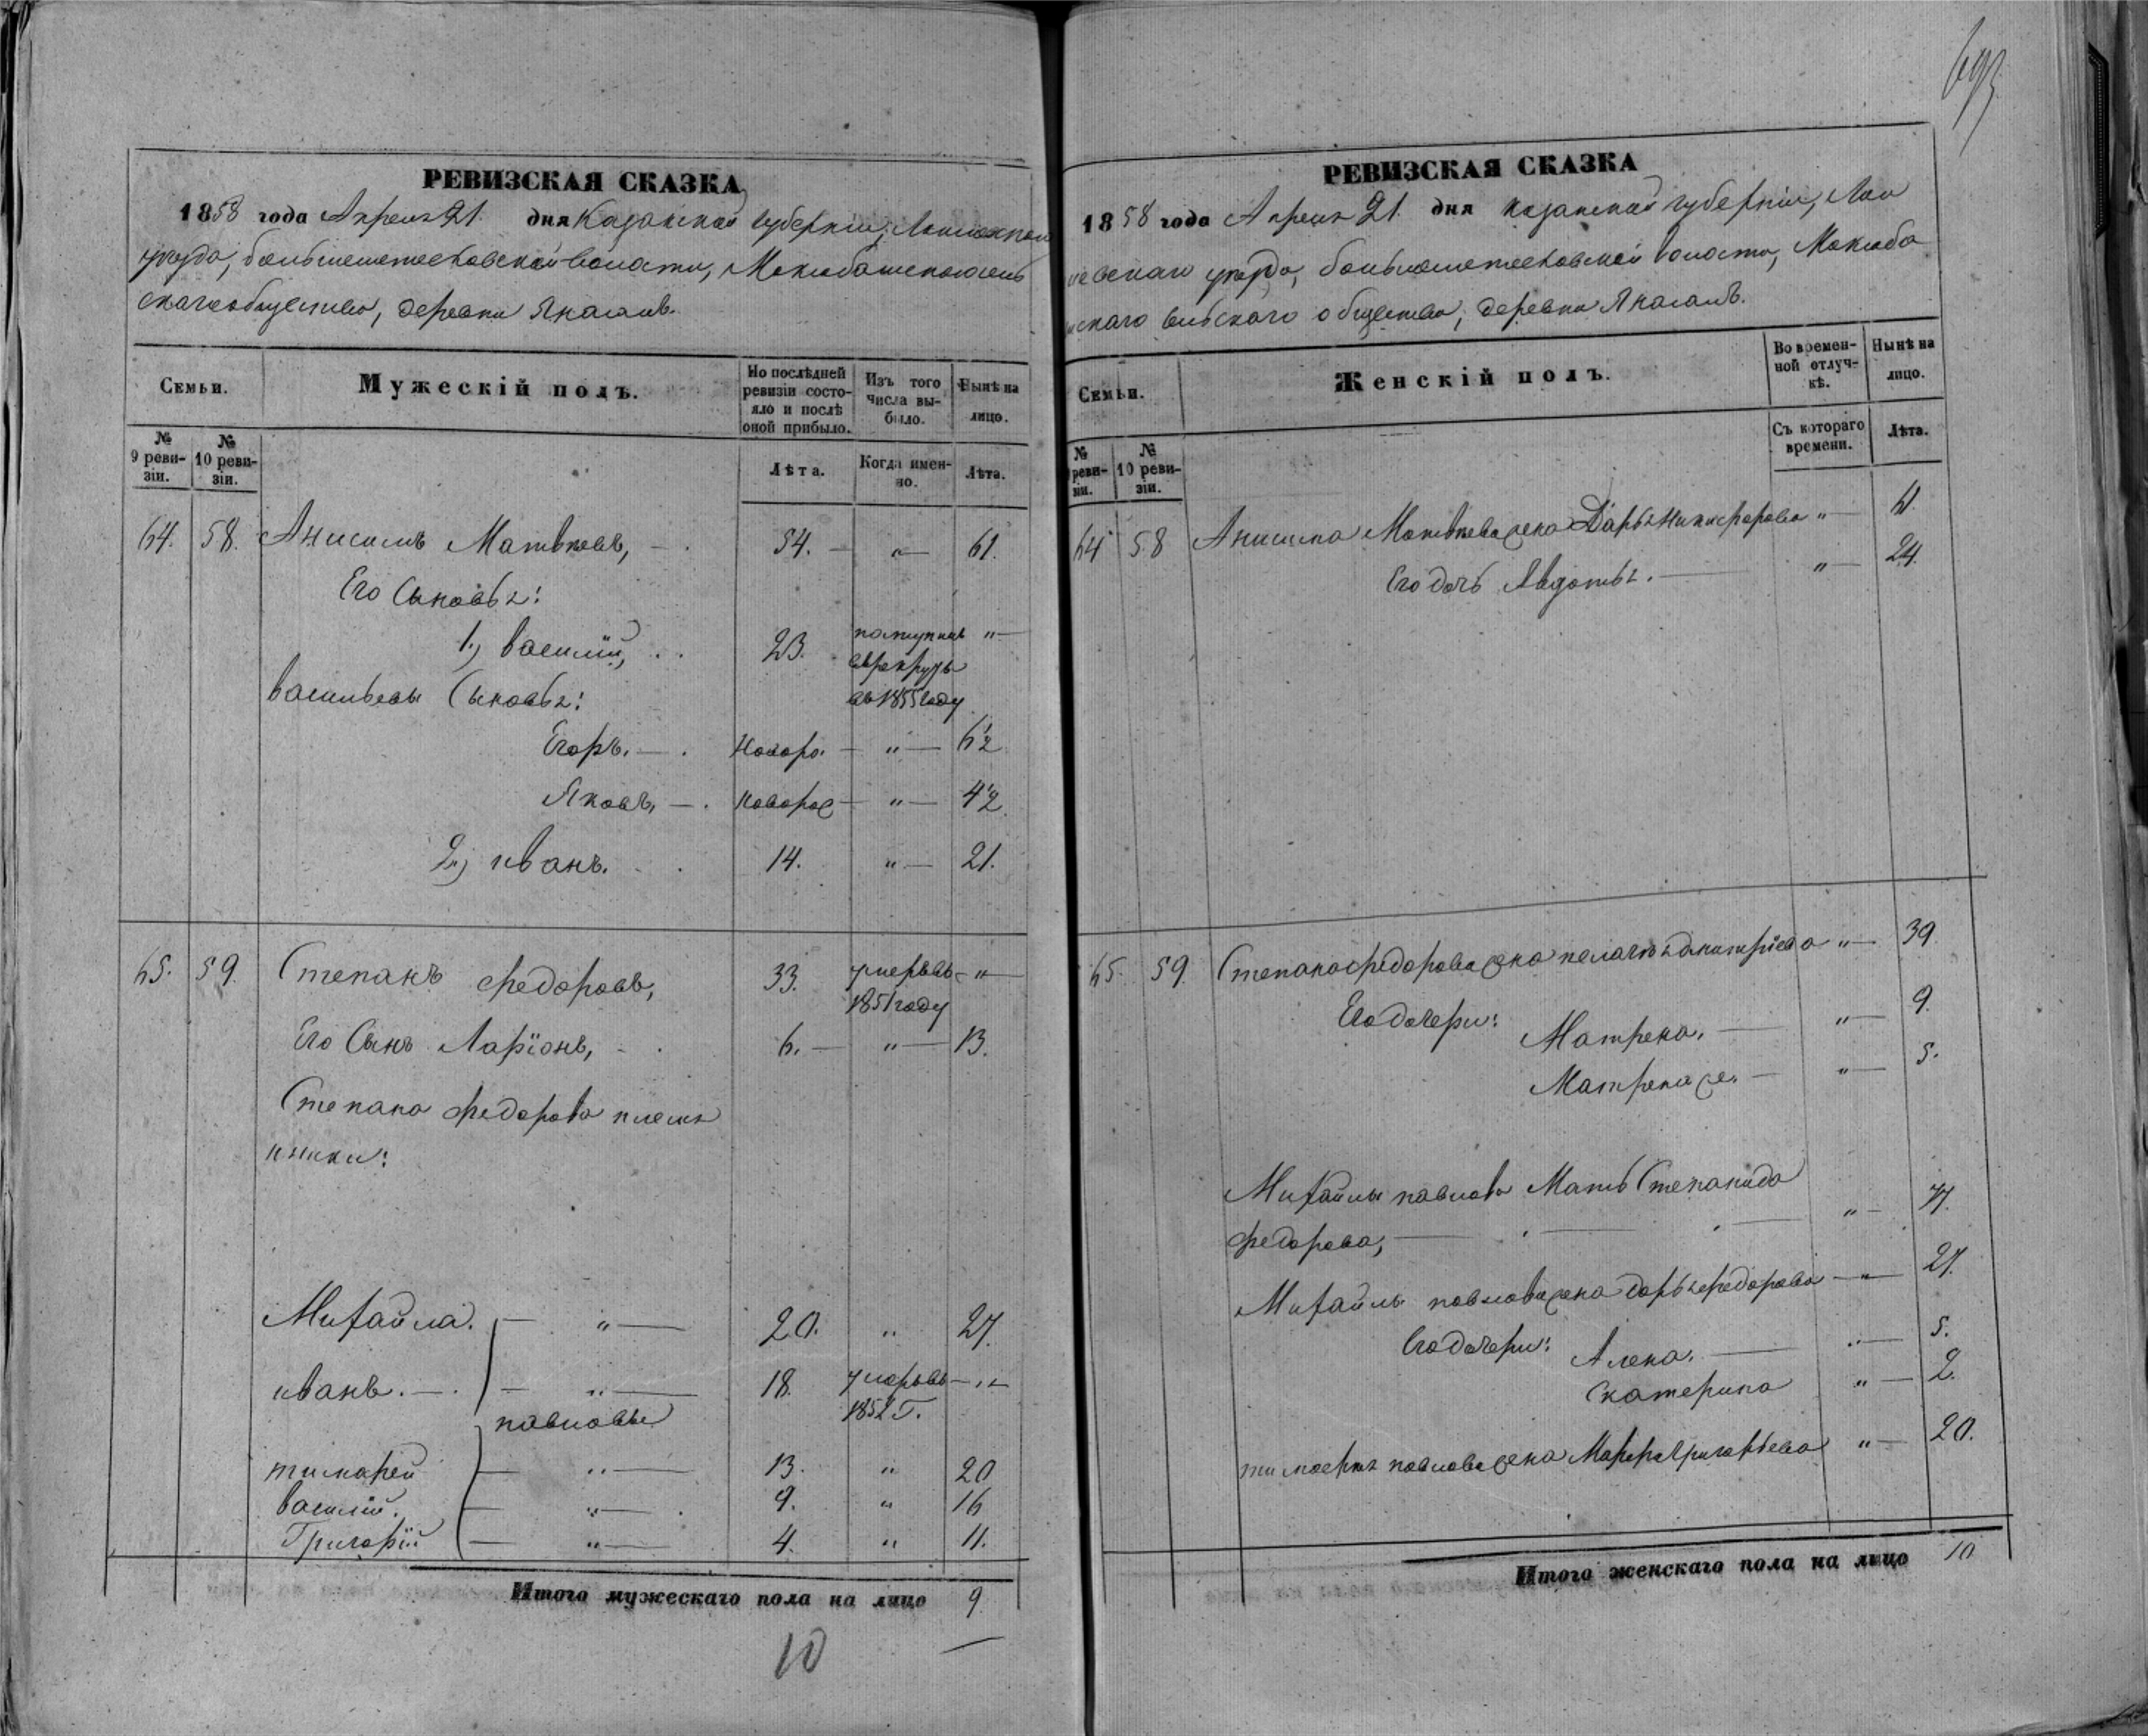 693
РЕВИЗСКАЯ СКАЗКА
1858 года Апреля 21. дня Казанской губернiи, Лаишевскаго
уезда, большеметесковской волости, Макабашскаго сель
скаго общества, деревни Янасалъ.
Семьи.
Мужескiй полъ.
По послѣдней ревизiи состояло и послѣ оной прибыло.
Изъ того числа выбыло.
Нынѣ на лицо.
№ 9 ревизiи.
№ 10 ревизiи.
Лѣта.
Когда именно.
Лѣта.
64. 58. Анисимъ Матвѣевъ, 54. — „ — 61.
Его Сыновья:
1.) василiй, 23. поступилъ „ —
въ рекруты
васильевы Сыновья: въ 1855 году
Егоръ. — Новоро. — „ — 6 1/2
Яковъ, — новорож — „ — 4 1/2
2.) иванъ. 14. „ — 21.
65. 59. Степанъ федоровъ, 33. умеръ въ „ —
1851 году
Его Сынъ Ларiонъ, 6. — „ — 13.
Степана федорова племя
нники:
Михайла. — „ — 20. „ 27.
иванъ. — „ — 18. умеръ въ — „ —
павловы 1852 г.
тимофей — „ — 13. „ 20
василiй. — „ — 9. „ 16
Григорiй — „ — 4. „ 11.
Итого мужескаго пола на лицо 9
10
РЕВИЗСКАЯ СКАЗКА
1858 года Апреля 21. дня казанской губернiи, Лаи
шевскаго уезда, большеметесковской волости, Макаба
шскаго сельскаго общества, деревни Янасалъ.
Семьи.
Женскiй полъ.
Во временной отлучкѣ.
Нынѣ на лицо.
№ 9 ревизiи.
№ 10 ревизiи.
Съ котораго времени.
Лѣта.
64 58 Анисима Матвѣева жена Дарья Никифорова „ — 61.
Его дочь Авдотья. — „ — 24.
65. 59. Степана федорова жена пелагея дмитрiева „ — 39.
Его дочери: Матрена. — „ — 9.
Матрена же. — „ — 5.
Михайлы павлова Мать Степанида
федорова, — „ — 47.
Михайлы павлова жена дарья федорова — „ — 27.
Его дочери: Алена. — „ — 5.
Катерина „ — 2.
тимофея павлова жена Марфа Григорьева „ — 20.
Итого женскаго пола на лицо 10